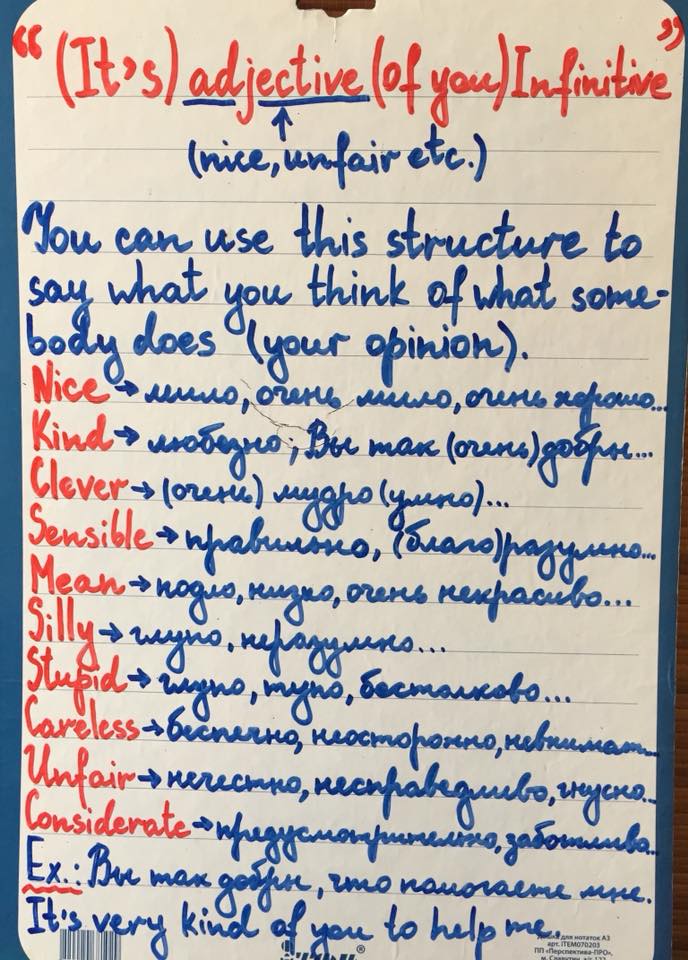 “(It’s) adjective (of you) Infinitive”
(nice, unfair etc.)
You can use this structure to
say what you think of what some-
body does (your opinion).
Nice → мило, очень мило, очень хорошо...
Kind → любезно; Вы так (очень) добры...
Clever → (очень) мудро (умно)...
Sensible → правильно, (благо)разумно...
Mean → подло, низко, очень некрасиво...
Silly → глупо, неразумно...
Stupid → глупо, тупо, бестолково...
Careless → беспечно, неосторожно, невнимат...
Unfair → нечестно, несправедливо, гнусно...
Considerate → предусмотрительно, заботлива...
Ex.: Вы так добры, что помогаете мне.
It’s very kind of you to help me.
для нотаток А3
арт. ITEM070203
ПП «Перспектива-ПРО»,
м. Славутич, а/с 122